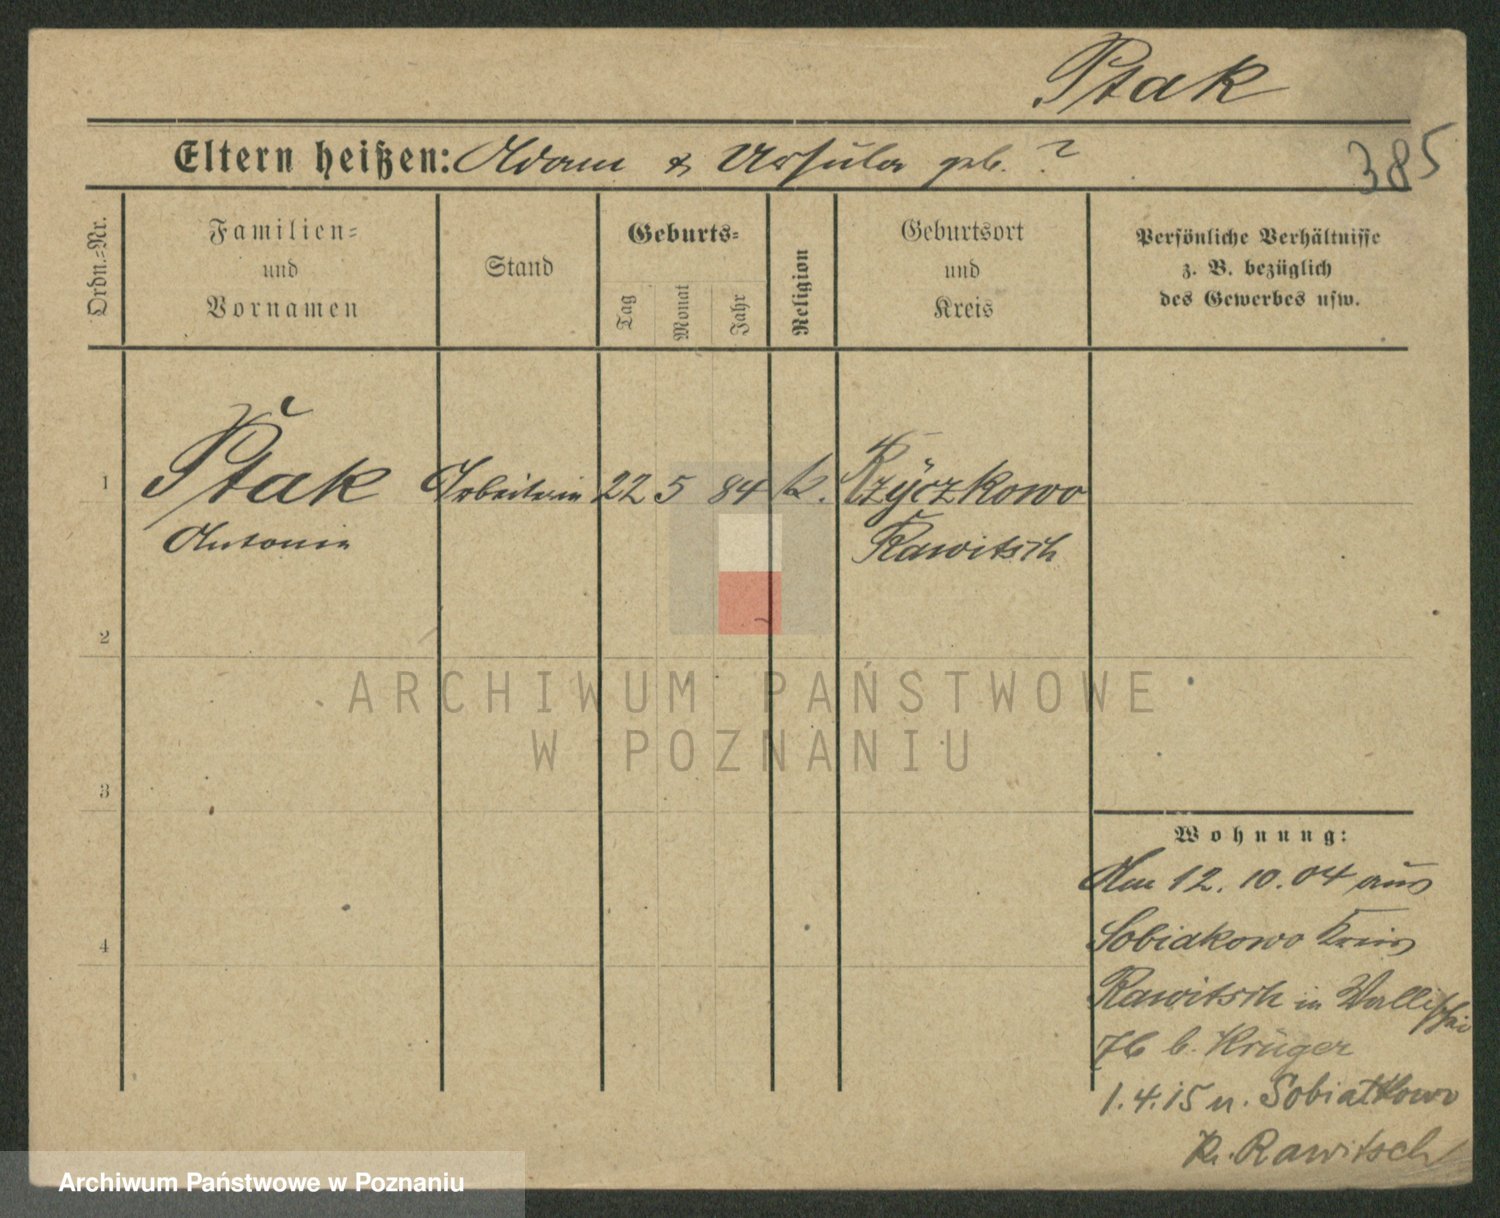 Ptak
385
Eltern heißen: Adam & Ursula geb. ?
Ordn.=Nr.
Familien=
und
Vornamen
Stand
Geburts=
Tag
Monat
Jahr
Religion
Geburtsort
und
Kreis
Persönliche Verhältnisse
z. B. bezüglich
des Gewerbes usw.
1
Ptak Arbeiterin 22 5 84 k. Rzyczkowo
Antonie Rawitsch
2
3
4
Wohnung:
Am 12. 10. 04 aus
Sobiakowo Kreis
Rawitsch in Wallischei
7b b. Krüger
1.4.15 n. Sobiatkowo
Kr. Rawitsch
ARCHIWUM PAŃSTWOWE
W POZNANIU
Archiwum Państwowe w Poznaniu